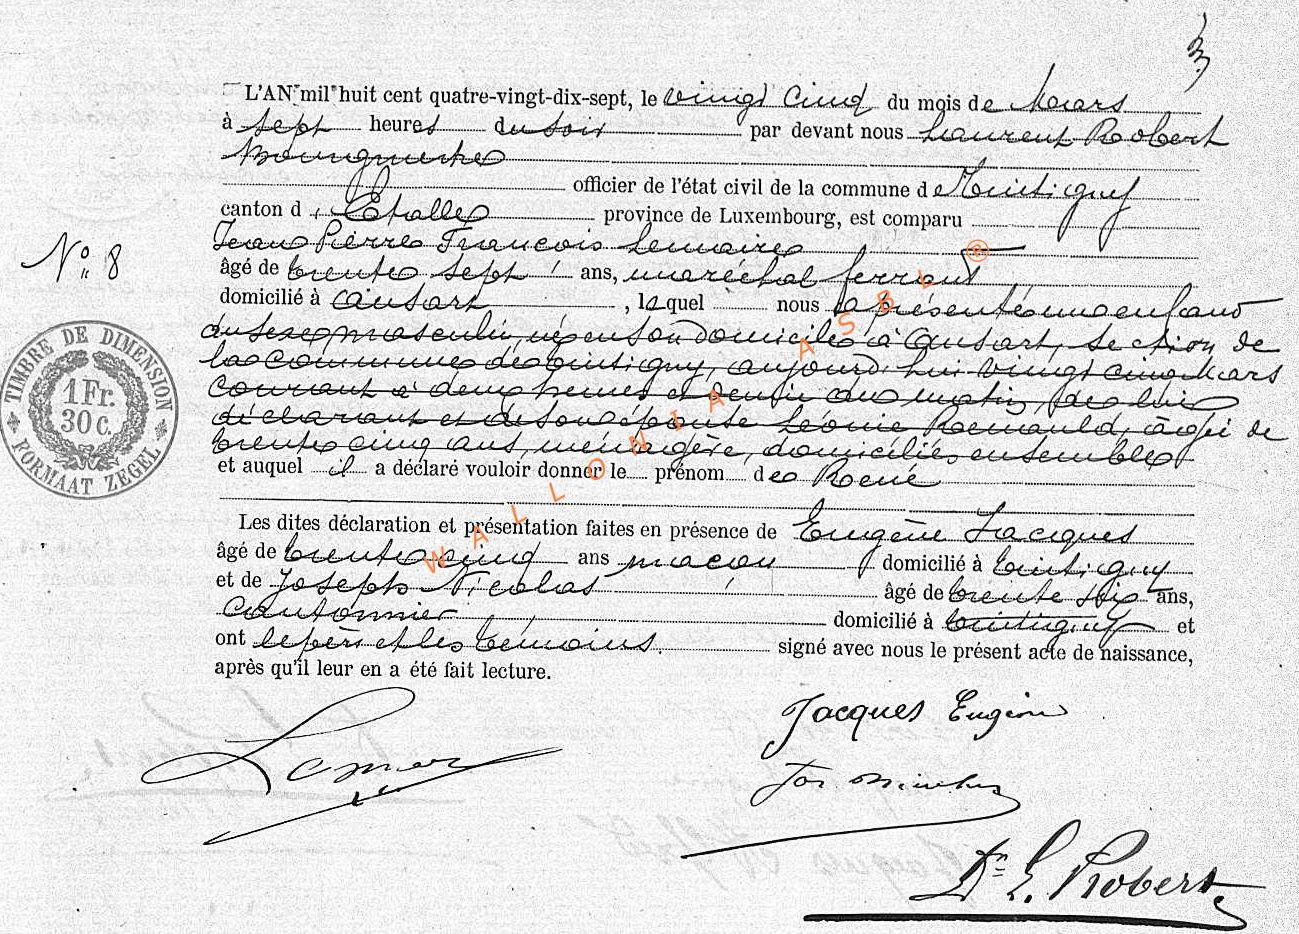 3
L'AN mil huit cent quatre-vingt-dix-sept, le vingt cinq du mois de Mars
à sept heures du soir par devant nous Laurent Robert
Bourgmestre
officier de l'état civil de la commune de Tintigny
canton d'Etalle province de Luxembourg, est comparu
Jean Pierre François Lemaire
N° 8
âgé de trente sept ans, maréchal ferrant
domicilié à Ansart, lequel nous a présenté un enfant
du sexe masculin, né en son domicile à Ansart, section de
la commune de Tintigny, aujourd'hui vingt cinq Mars
courant à deux heures et demie du matin, de lui
déclarant et de son épouse Léonie Renauld, âgée de
trente cinq ans, ménagère, domiciliés ensemble
et auquel il a déclaré vouloir donner le prénom de René
TIMBRE DE DIMENSION
1 Fr.
30 C.
FORMAAT ZEGEL
Les dites déclaration et présentation faites en présence de Eugène Jacques
âgé de trente cinq ans maçon domicilié à Tintigny
et de Joseph Nicolas âgé de trente six ans,
cantonnier domicilié à Tintigny et
ont le père et les témoins signé avec nous le présent acte de naissance,
après qu'il leur en a été fait lecture.
WALLONIA ASBL ®
Jacques Eugène
Jos Nicolas
Dr L. Robert